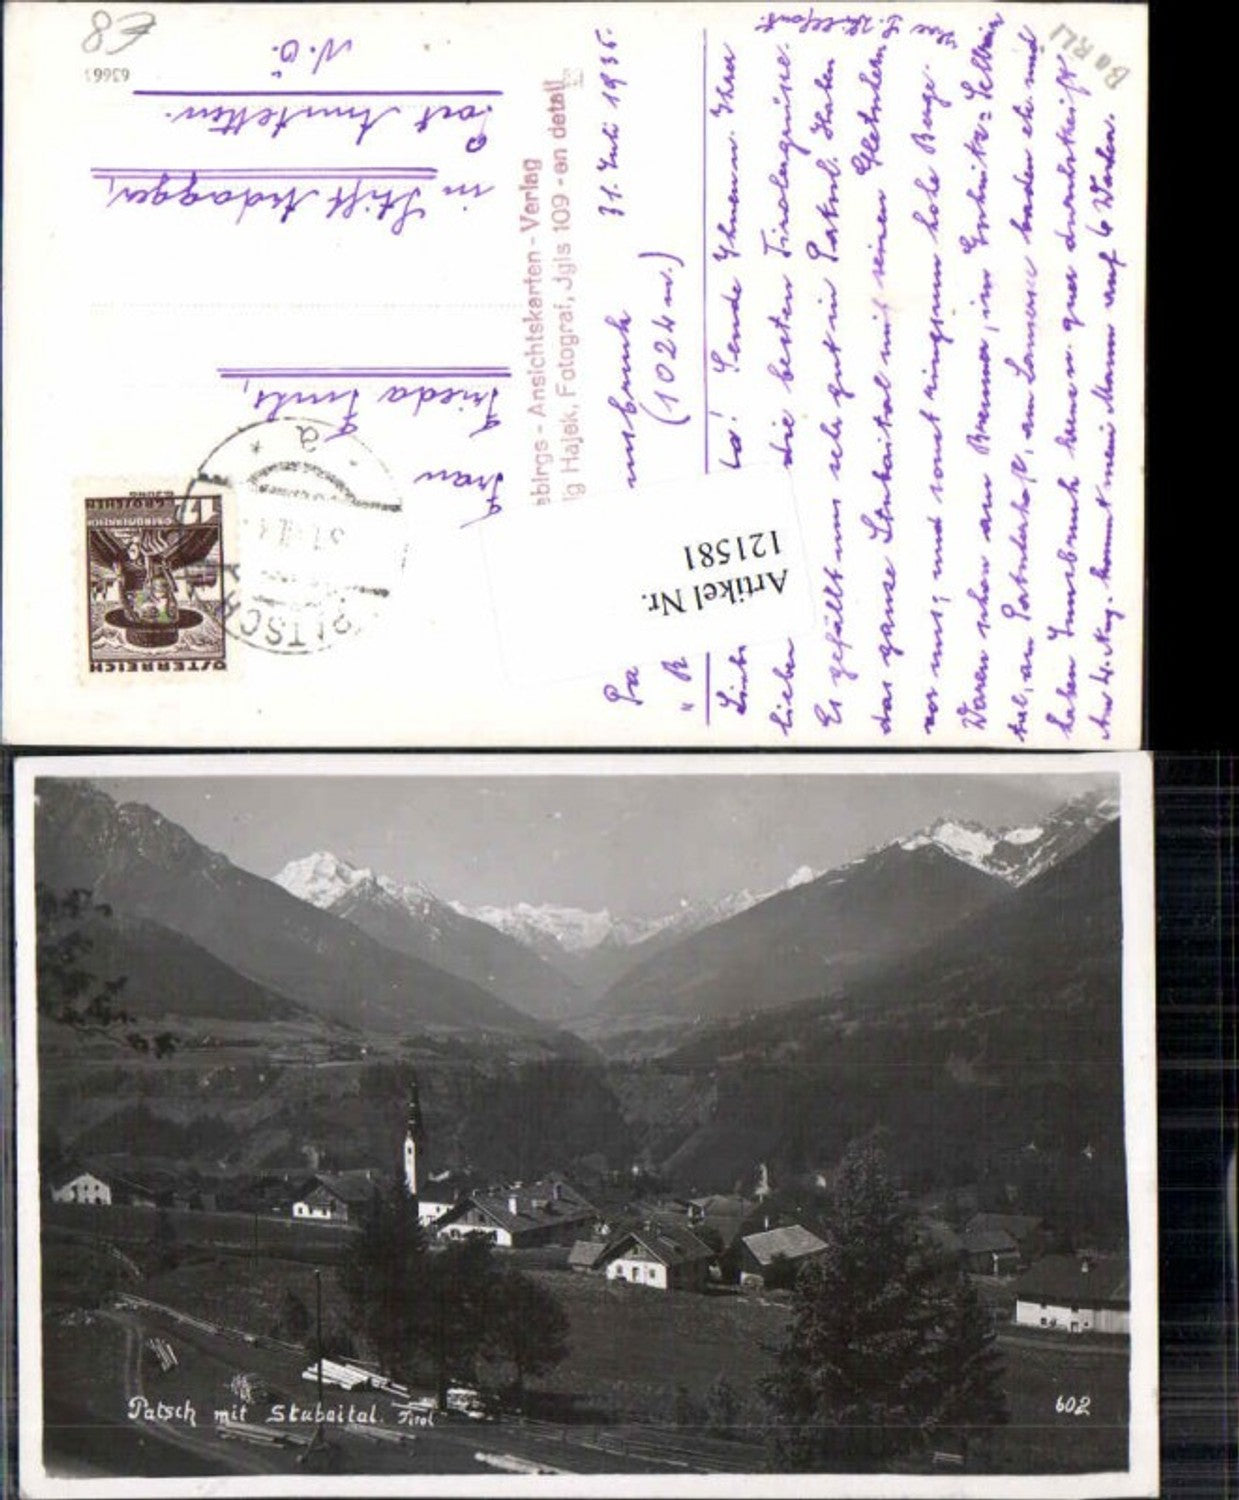 €8
63661
Frau
Frieda
in Stift Ardagger,
Post Amstetten.
N.Ö.
ÖSTERREICH
PATSCH
a
ebirgs - Ansichtskarten - Verlag
lg Hajek, Fotograf, Jgls 109 - en detail
31. Juli 1935.
nsbruck
(1024 m.)
Artikel Nr.
121581
Sende Ihnen u. Ihren
lieben die besten Tirolergrüsse.
Es gefällt uns sehr gut in Patsch. Haben
das ganze Stubaital mit seinen Gletschern
vor uns, und sonst ringsum hohe Berge.
Waren schon am Brenner, im Gschnitz-
tal, am Patscherkofl, am Lansersee baden etc. und
haben Innsbruck kreuz u. quer durchstreift.
Am 4. Aug. kommt mein Mann auf 6 Wochen.
BaRLI
Patsch mit Stubaital. Tirol
602